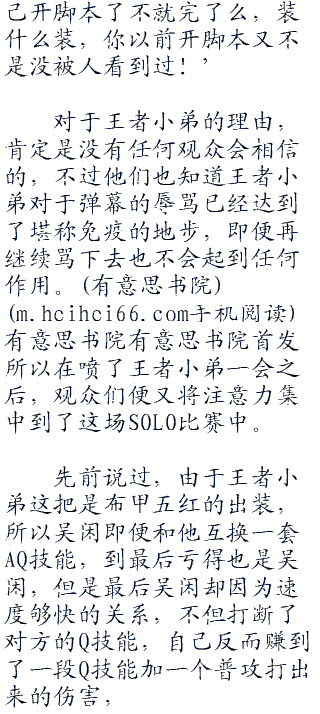 己开脚本了不就完了么，装
什么装，你以前开脚本又不
是没被人看到过！’
对于王者小弟的理由，
肯定是没有任何观众会相信
的，不过他们也知道王者小
弟对于弹幕的辱骂已经达到
了堪称免疫的地步，即便再
继续骂下去也不会起到任何
作用。(有意思书院)
(m.hcihci66.com手机阅读)
有意思书院有意思书院首发
所以在喷了王者小弟一会之
后，观众们便又将注意力集
中到了这场SOLO比赛中。
先前说过，由于王者小
弟这把是布甲五红的出装，
所以吴闲即便和他互换一套
AQ技能，到最后亏得也是吴
闲，但是最后吴闲却因为速
度够快的关系，不但打断了
对方的Q技能，自己反而赚到
了一段Q技能加一个普攻打出
来的伤害，